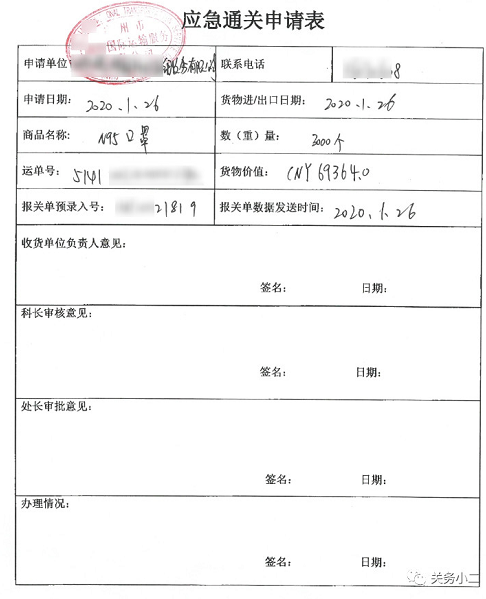 应急通关申请表
州市
国际运输服务
申请单位
有限公司
联系电话
8
申请日期: 2020.1.26
货物进/出口日期: 2020.1.26
商品名称: N95口罩
数(重)量: 3000个
运单号: 5141
货物价值: CNY 69364.0
报关单预录入号: 21819
报关单数据发送时间: 2020.1.26
收货单位负责人意见:
签名: 日期:
科长审核意见:
签名: 日期:
处长审批意见:
签名: 日期:
办理情况:
签名: 日期:
关务小二